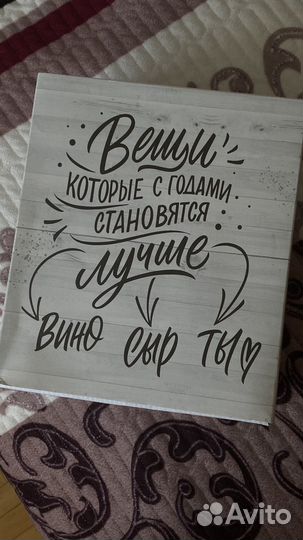 Вещи
КОТОРЫЕ С ГОДАМИ
СТАНОВЯТСЯ
лучше
вино сыр ты
Avito